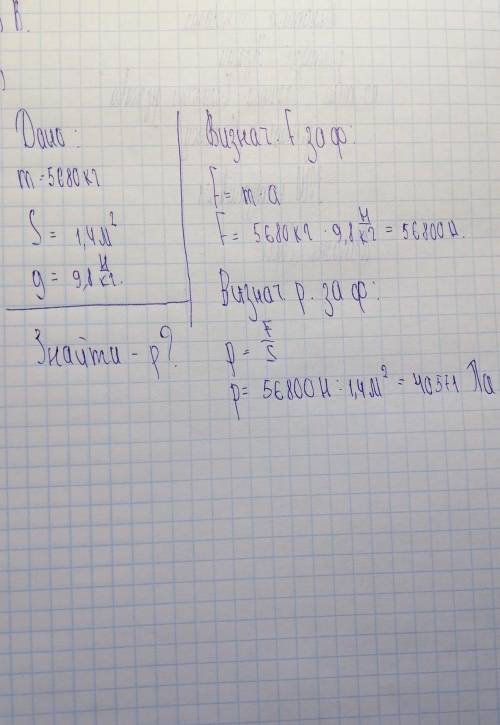 В.
Дано:
m=5680кг
S = 1,4м²
g = 9,8 Н/кг.
Знайти - p?
Визнач. F за ф:
F = m·a
F = 5680кг · 9,8 Н/кг = 56800Н.
Визнач. p. за ф:
p = F/S
p = 56800Н : 1,4м² = 40571 Па